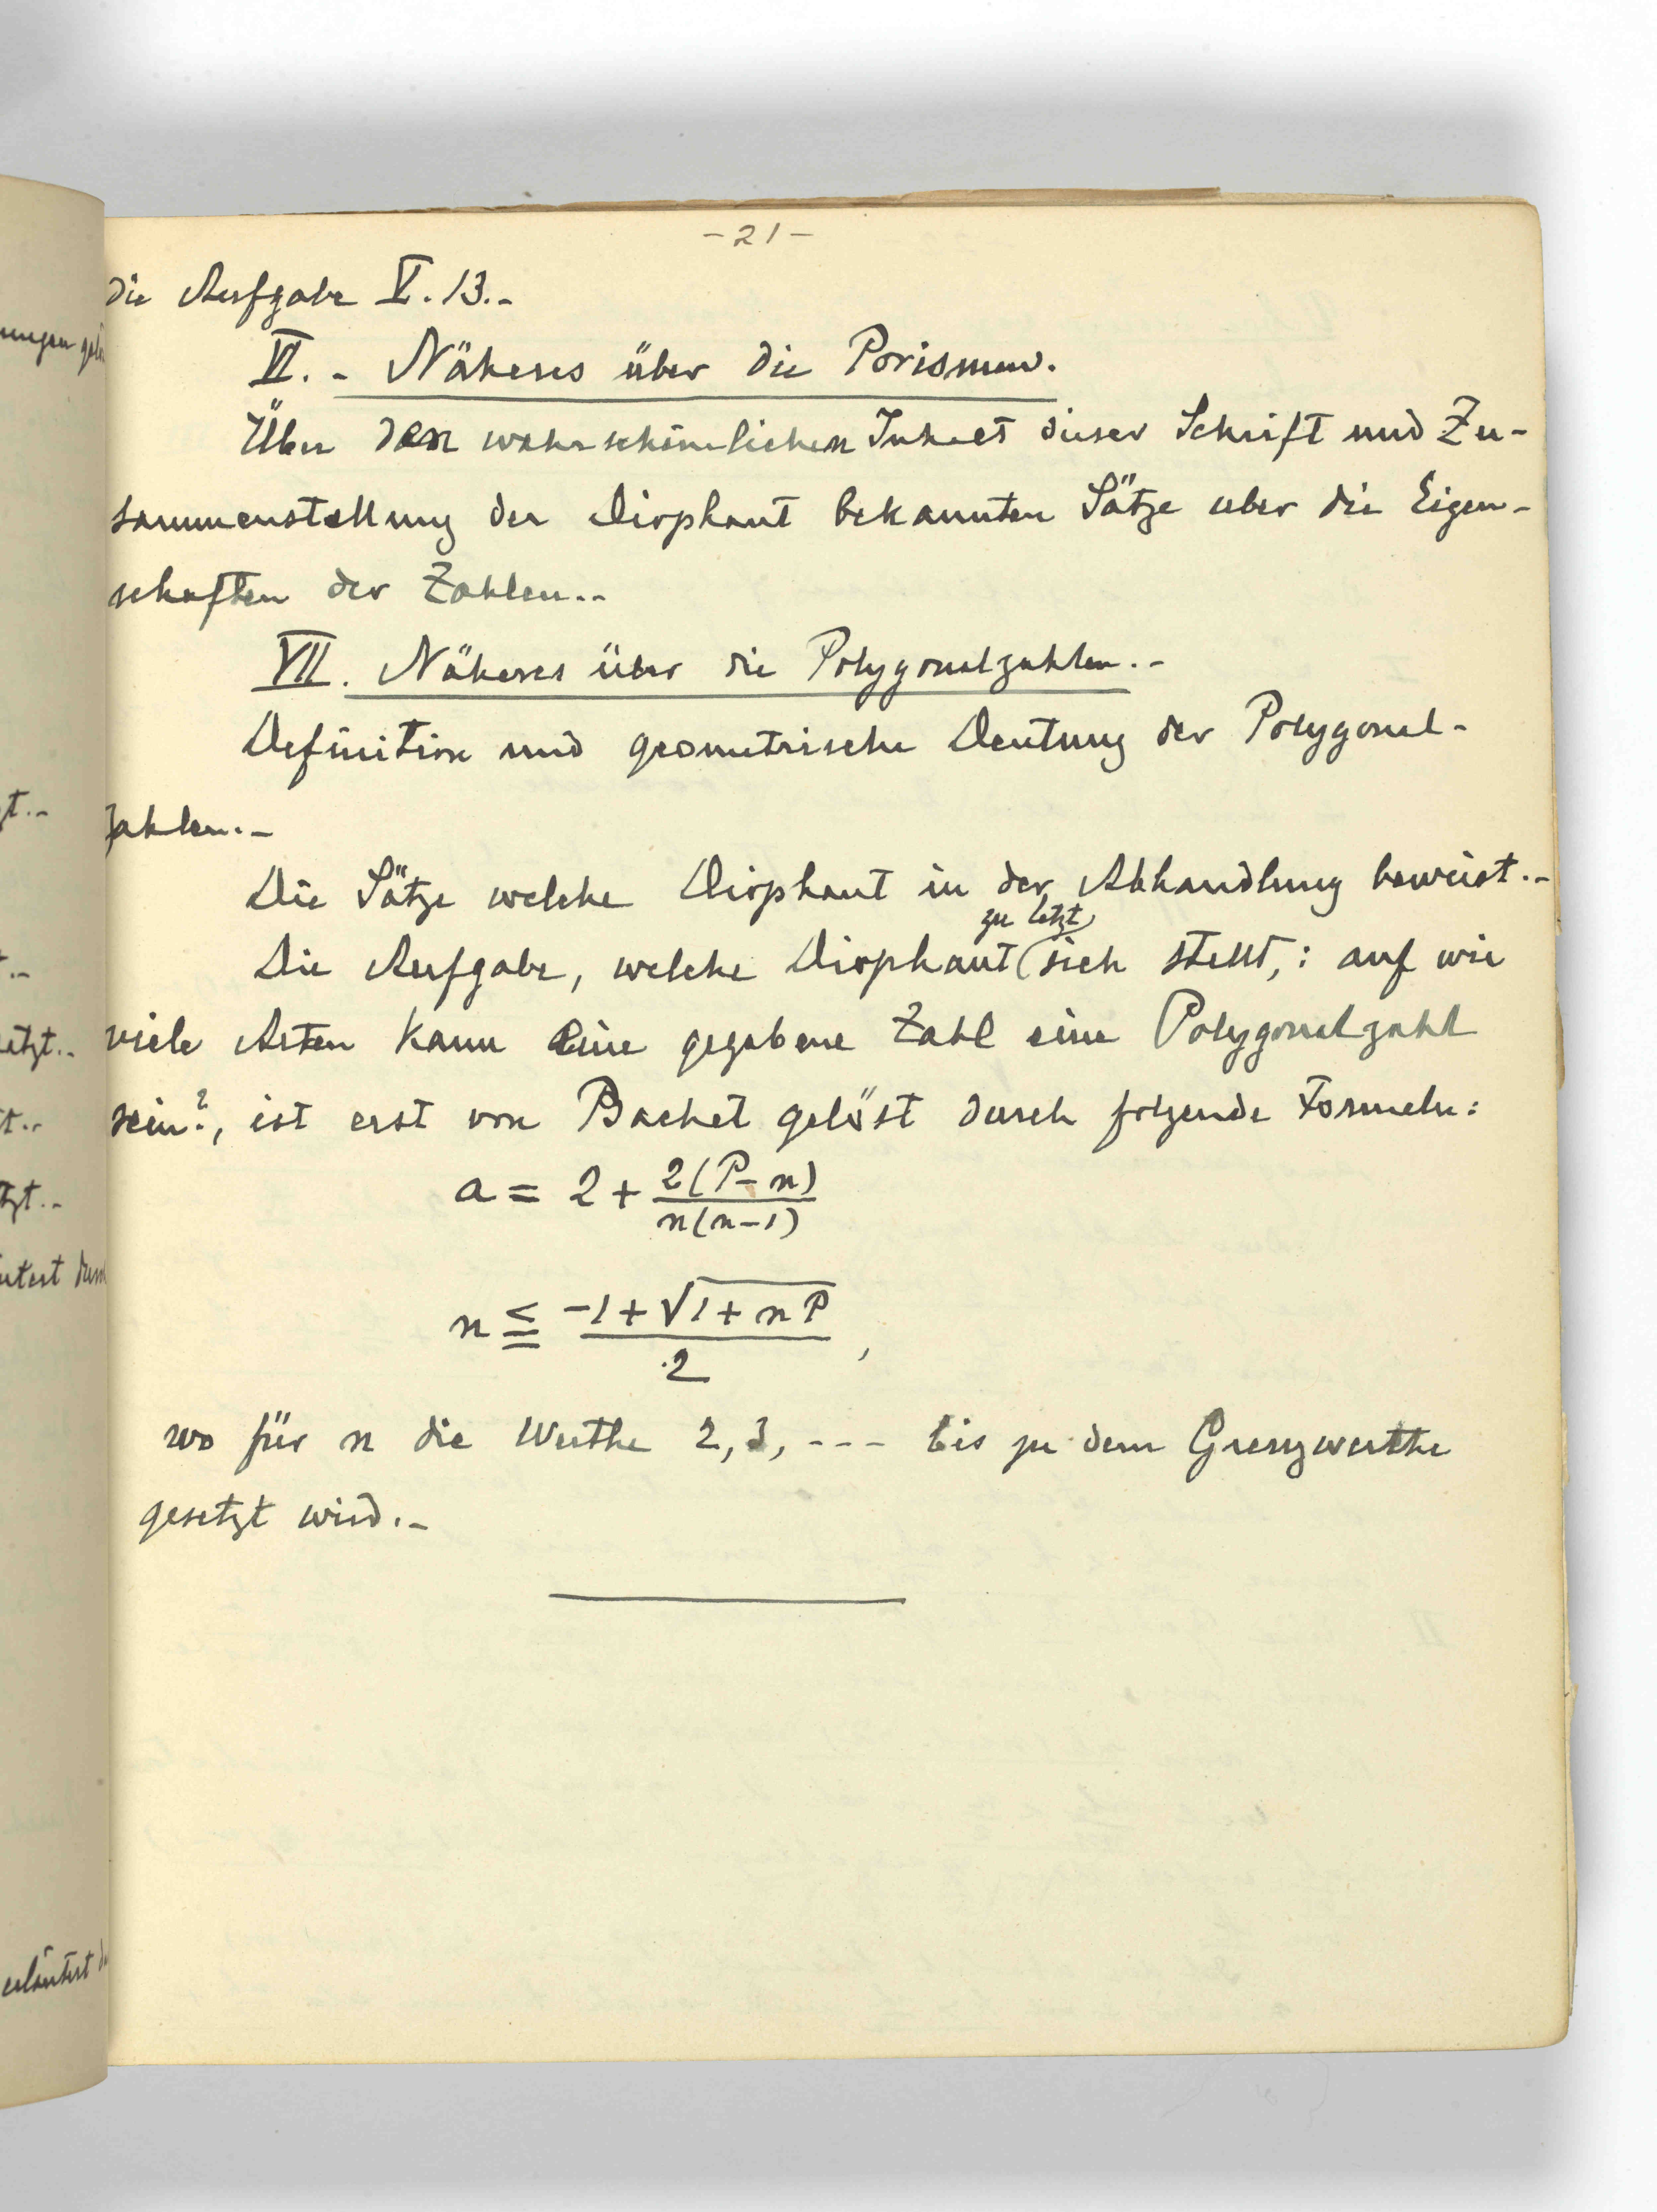 -21-
die Aufgabe V. 13.-
VI. - Näheres über die Porismen.
Über den wahrscheinlichen Inhalt dieser Schrift und Zu-
sammenstellung der Diophant bekannten Sätze über die Eigen-
schaften der Zahlen.-
VII. Näheres über die Polygonalzahlen.-
Definition und geometrische Deutung der Polygonal-
zahlen.-
Die Sätze welche Diophant in der Abhandlung beweist.-
zu letzt
Die Aufgabe, welche Diophant sich stellt,: auf wie
viele Arten kann eine gegebene Zahl eine Polygonalzahl
sein?, ist erst von Bachet gelöst durch folgende Formeln:
a = 2 + 2(P-n) / n(n-1)
n ≦ -1+√1+nP / 2 ,
wo für n die Werthe 2, 3, --- bis zu dem Grenzwerthe
gesetzt wird.-
zt.-
etzt.-
t.-
tzt.-
erläutert